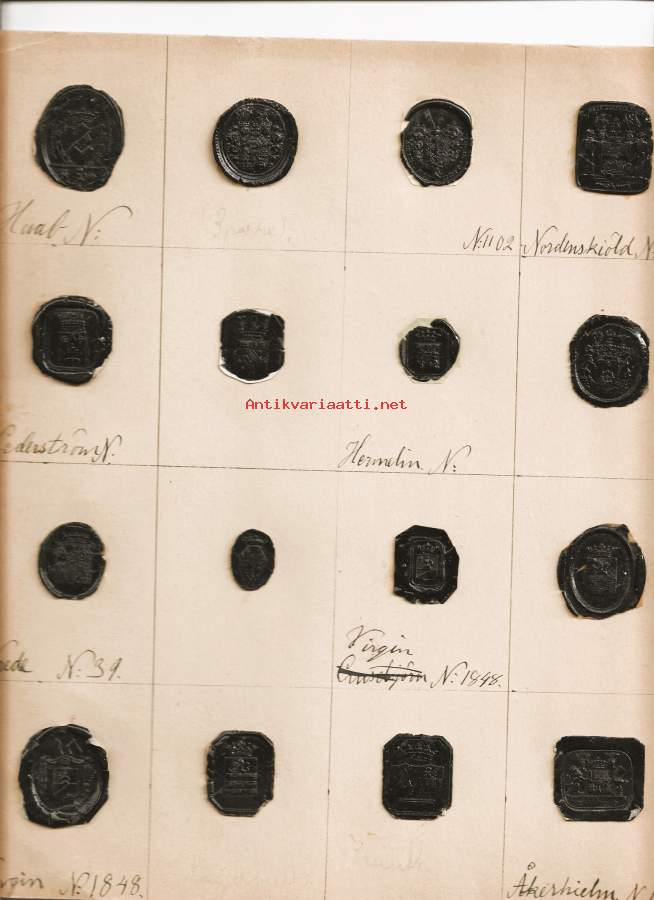 Haab N:
N:1102
Nordenskiöld N:
Antikvariaatti.net
Cederström N.
Hermelin N:
N:39.
Virgin
Crusebjörn N:1848.
Virgin N:1848.
Åkerhielm N